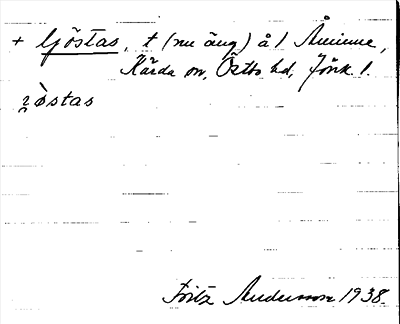 + Gjöstas, t (nu äng) å l Åminne,
Kärda sn, Östbo hd, Jönk. l.
jòstas
Fritz Andersson 1938.